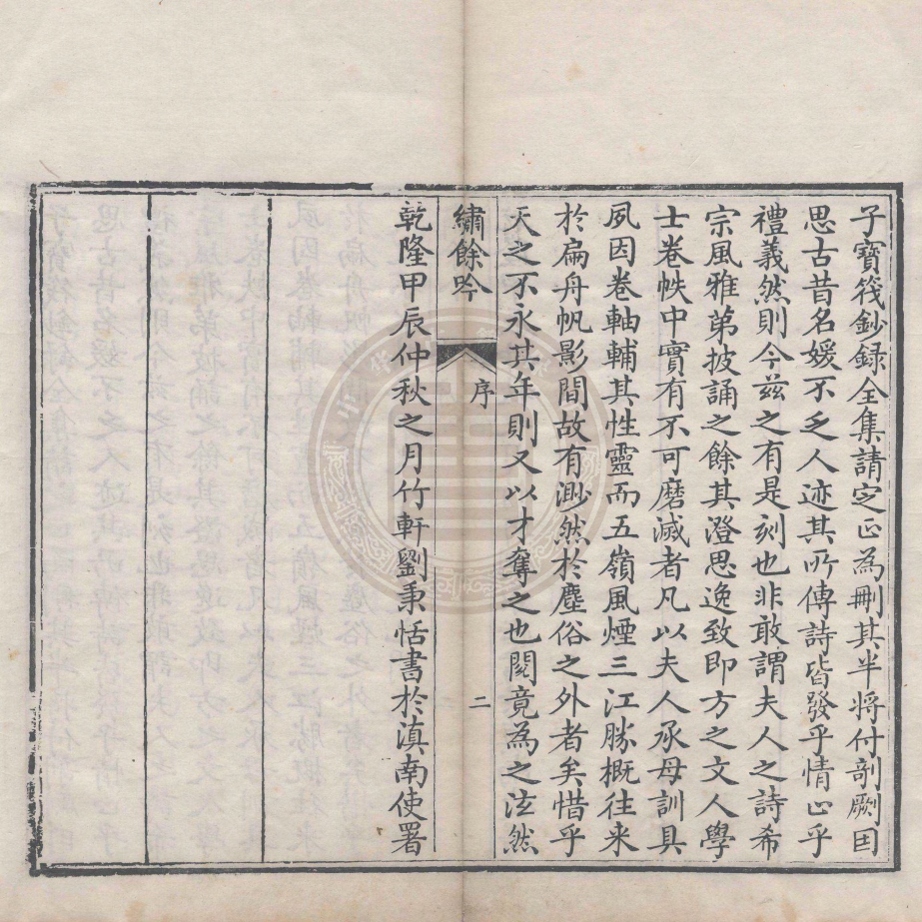 子寶筏鈔録全集請定正為刪其半將付剞劂因
思古昔名媛不乏人迹其所傳詩皆發乎情止乎
禮義然則今茲之有是刻也非敢謂夫人之詩希
宗風雅弟披誦之餘其澄思逸致即方之文人學
士卷帙中實有不可磨滅者凡以夫人承母訓具
夙因卷軸輔其性靈而五嶺風煙三江勝概往来
於扁舟帆影間故有渺然於塵俗之外者矣惜乎
天之不永其年則又以才奪之也閱竟為之泫然
繡餘吟 序 二
乾隆甲辰仲秋之月竹軒劉秉恬書於滇南使署